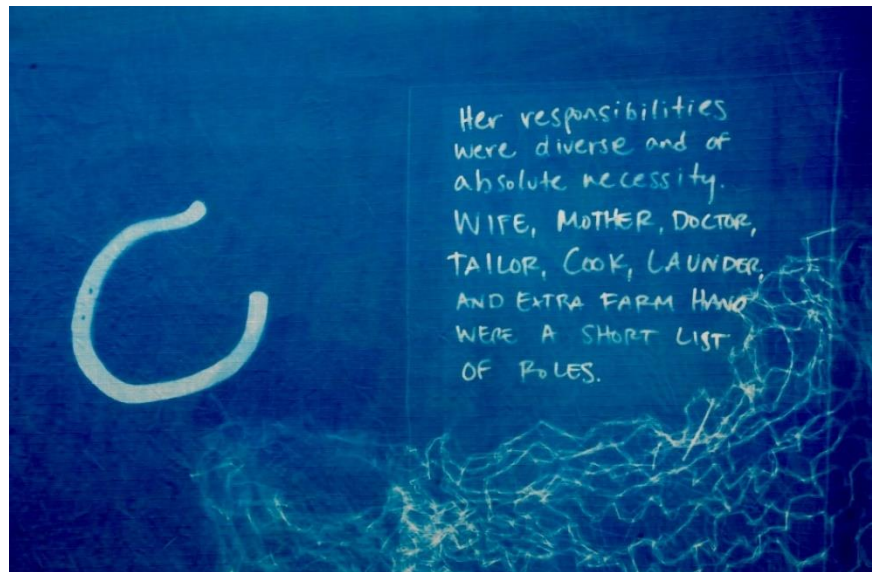 Her responsibilities
were diverse and of
absolute necessity.
WIFE, MOTHER, DOCTOR,
TAILOR, COOK, LAUNDER,
AND EXTRA FARM HAND
WERE A SHORT LIST
OF ROLES.